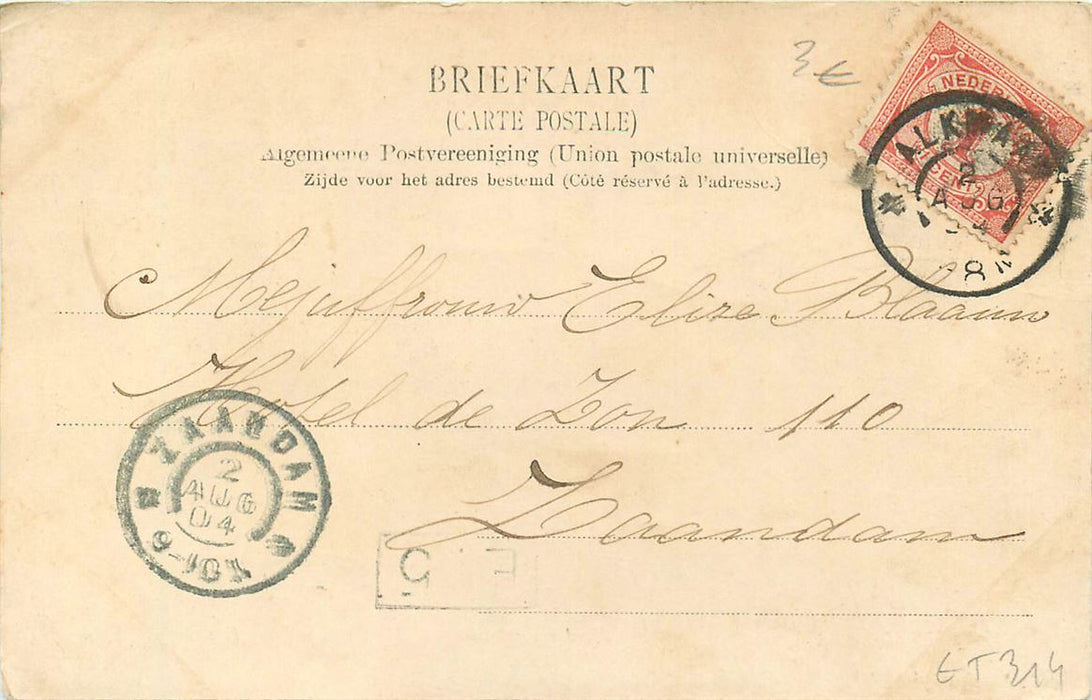 BRIEFKAART
(CARTE POSTALE)
Algemeene Postvereeniging (Union postale universelle)
Zijde voor het adres bestemd (Côté réservé à l'adresse.)
3€
NEDER
CENT
ALKMAAR
2
AUG
04
8
Mejuffrouw Elize Blaauw
Hotel de Zon 110
Zaandam
ZAANDAM
2
AUG
04
9-10
5
ET314